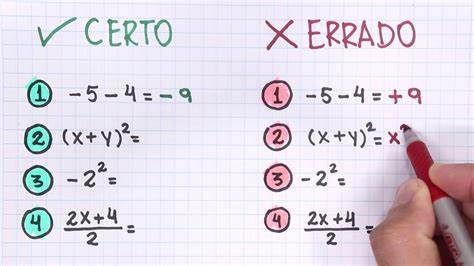 ✓ CERTO
① -5-4=-9
② (x+y)²=
③ -2²=
④ 2x+4/2=
✗ ERRADO
① -5-4=+9
② (x+y)²=x
③ -2²=
④ 2x+4/2=